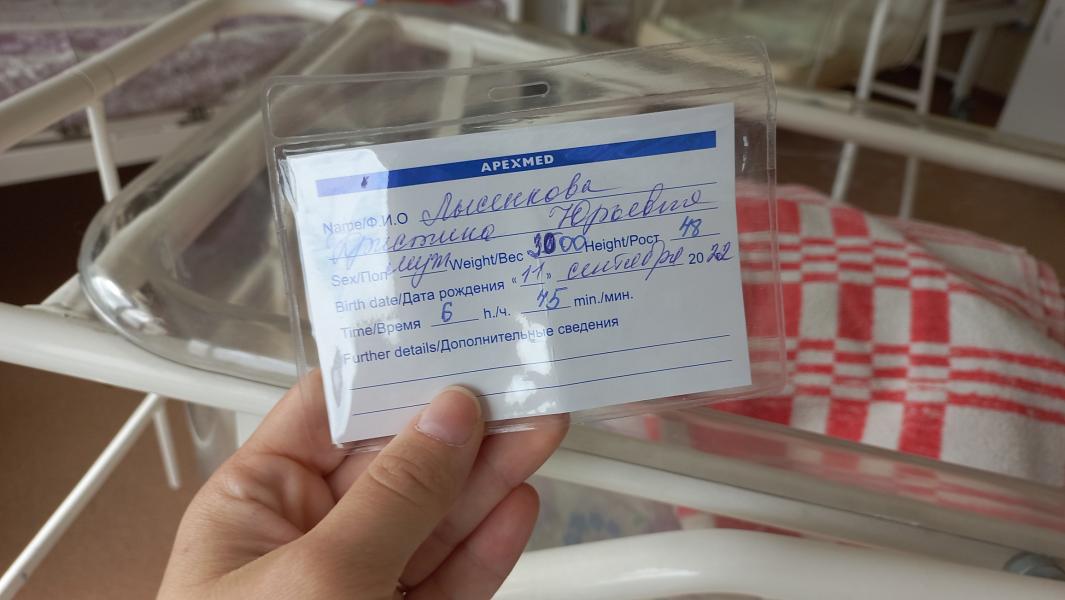 APEXMED
Name/Ф.И.О Лысенкова
Кристина Юрьевна
Sex/Пол муж Weight/Вес 3000 Height/Рост 48
Birth date/Дата рождения "11" сентября 2022
Time/Время 6 h./ч. 45 min./мин.
Further details/Дополнительные сведения